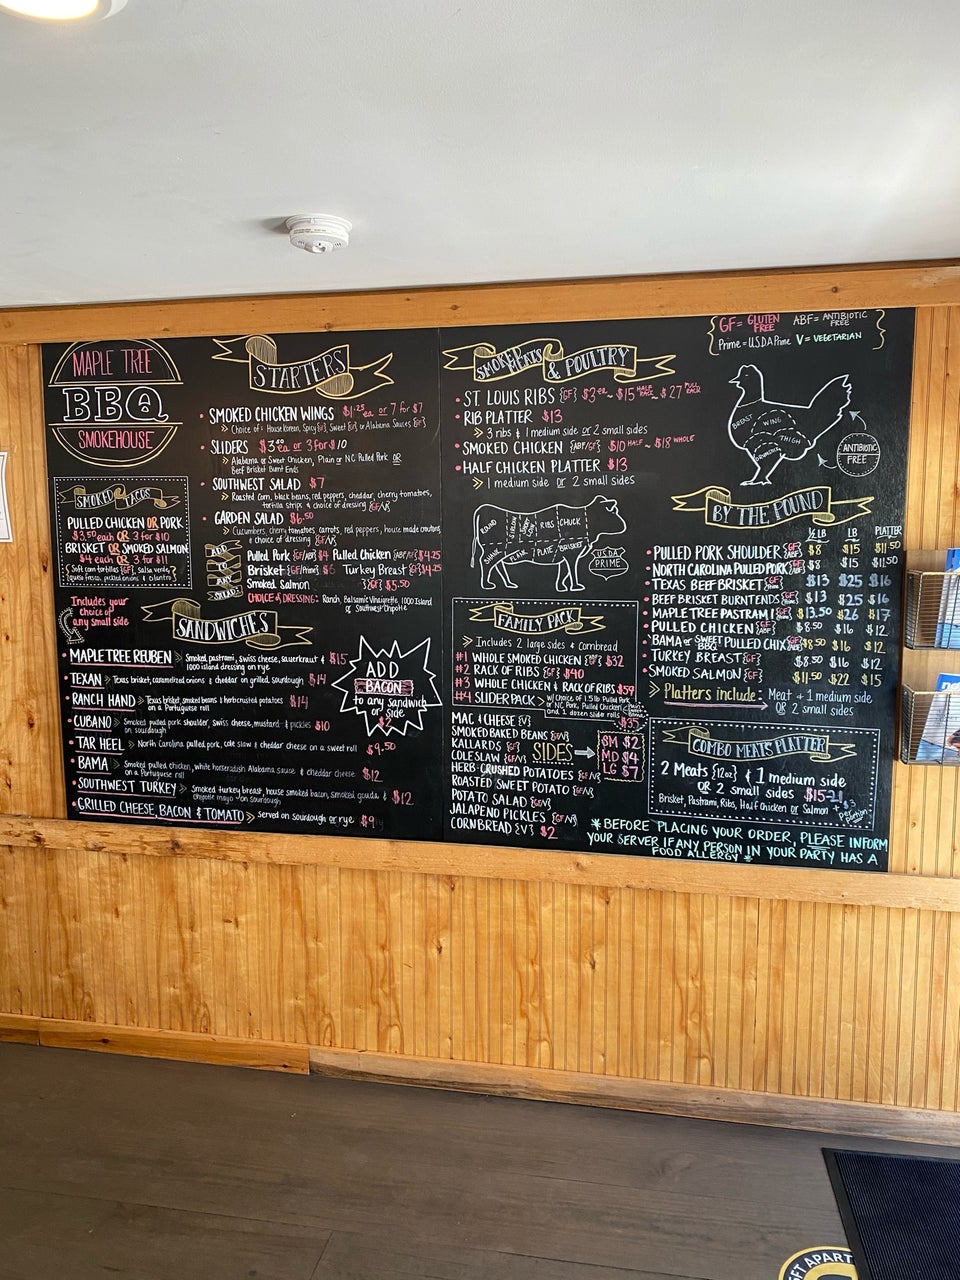 MAPLE TREE
BBQ
SMOKEHOUSE
SMOKED TACOS
PULLED CHICKEN OR PORK
$3.50 each OR 3 for $10
BRISKET OR SMOKED SALMON
$4 each OR 3 for $11
Soft corn tortillas {GF} salsa verde,
queso fresco, pickled onions & cilantro
STARTERS
SMOKED CHICKEN WINGS $1.25 ea or 7 for $7
Choice of: House Korean, Spicy, Sweet or Alabama Sauces {GF}
SLIDERS ea or 3 for $10
Alabama or Sweet Chicken, Plain or NC Pulled Pork OR
Beef Brisket Burnt Ends
SOUTHWEST SALAD $7
Roasted corn, black beans, red peppers, cheddar, cherry tomatoes,
tortilla strips & choice of dressing {GF/V}
GARDEN SALAD $6.50
Cucumbers, cherry tomatoes, carrots, red peppers, house made croutons
& choice of dressing {GF/V}
ADD TO ANY SALAD:
Pulled Pork {GF/ABF} $4 Pulled Chicken {ABF/GF} $4.25
Brisket {GF/Prime} $6 Turkey Breast {GF} $4.25
Smoked Salmon {GF} $5.50
CHOICE of DRESSING: Ranch, Balsamic Vinaigrette, 1000 Island
or Southwest Chipotle
Includes your
choice of
any small side
SANDWICHES
MAPLE TREE REUBEN Smoked pastrami, swiss cheese, sauerkraut & $15
1000 island dressing on rye
TEXAN Texas brisket, caramelized onions & cheddar on grilled sourdough $14
RANCH HAND Texas brisket, smoked beans & horseradish $14
on a Portuguese roll
CUBANO Smoked pulled pork shoulder, swiss cheese, mustard & pickles $10
on sourdough
TAR HEEL North Carolina pulled pork, cole slaw & cheddar cheese on a sweet roll $9.50
BAMA Smoked pulled chicken, white horseradish Alabama sauce & cheddar cheese $12
on a Portuguese roll
SOUTHWEST TURKEY Smoked turkey breast, house smoked bacon, smoked gouda & $12
chipotle mayo on sourdough
GRILLED CHEESE, BACON & TOMATO served on sourdough or rye $9
ADD
BACON
to any sandwich
or side
$2
SMOKED MEATS & POULTRY
ST. LOUIS RIBS {GF} $3 ea ~ $15 HALF RACK ~ $27 FULL RACK
RIB PLATTER $13
3 ribs & 1 medium side or 2 small sides
SMOKED CHICKEN {ABF/GF} $10 HALF ~ $18 WHOLE
HALF CHICKEN PLATTER $13
1 medium side or 2 small sides
ROUND
SIRLOIN
SHORT LOIN
RIBS
CHUCK
SHANK
FLANK
PLATE
BRISKET
USDA
PRIME
FAMILY PACK
Includes 2 large sides & cornbread
#1 WHOLE SMOKED CHICKEN $32
#2 RACK OF RIBS {GF} $40
#3 WHOLE CHICKEN & RACK OF RIBS $59
#4 SLIDER PACK w/ Choice of 1.5 lb Pulled Pork
or NC Pork, Pulled Chicken
and 1 dozen slider rolls
MAC & CHEESE {V}
SMOKED BAKED BEANS {GF/V}
KALLARDS {GF}
COLESLAW {GF/V}
HERB CRUSHED POTATOES {GF/V}
ROASTED SWEET POTATO {GF/V}
POTATO SALAD {GF/V}
JALAPENO PICKLES {GF/V}
CORNBREAD {V} $2
SIDES
SM $2
MD $4
LG $7
GF = GLUTEN FREE ABF = ANTIBIOTIC FREE
Prime = USDA Prime V = VEGETARIAN
BREAST
WING
THIGH
DRUMSTICK
ANTIBIOTIC
FREE
BY THE POUND
½ LB LB PLATTER
PULLED PORK SHOULDER $8 $15 $11.50
NORTH CAROLINA PULLED PORK $8 $15 $11.50
TEXAS BEEF BRISKET $13 $25 $16
BEEF BRISKET BURNT ENDS $13 $25 $16
MAPLE TREE PASTRAMI $13.50 $26 $17
PULLED CHICKEN $8.50 $16 $12
BAMA or SWEET BBQ PULLED CHIX $8.50 $16 $12
TURKEY BREAST {GF} $8.50 $16 $12
SMOKED SALMON {GF} $11.50 $22 $15
Platters include: Meat + 1 medium side
OR 2 small sides
COMBO MEATS PLATTER
2 Meats {12oz} & 1 medium side
OR 2 small sides
Brisket, Pastrami, Ribs, Half Chicken or Salmon
*BEFORE PLACING YOUR ORDER, PLEASE INFORM
YOUR SERVER IF ANY PERSON IN YOUR PARTY HAS A
FOOD ALLERGY*
FT APART